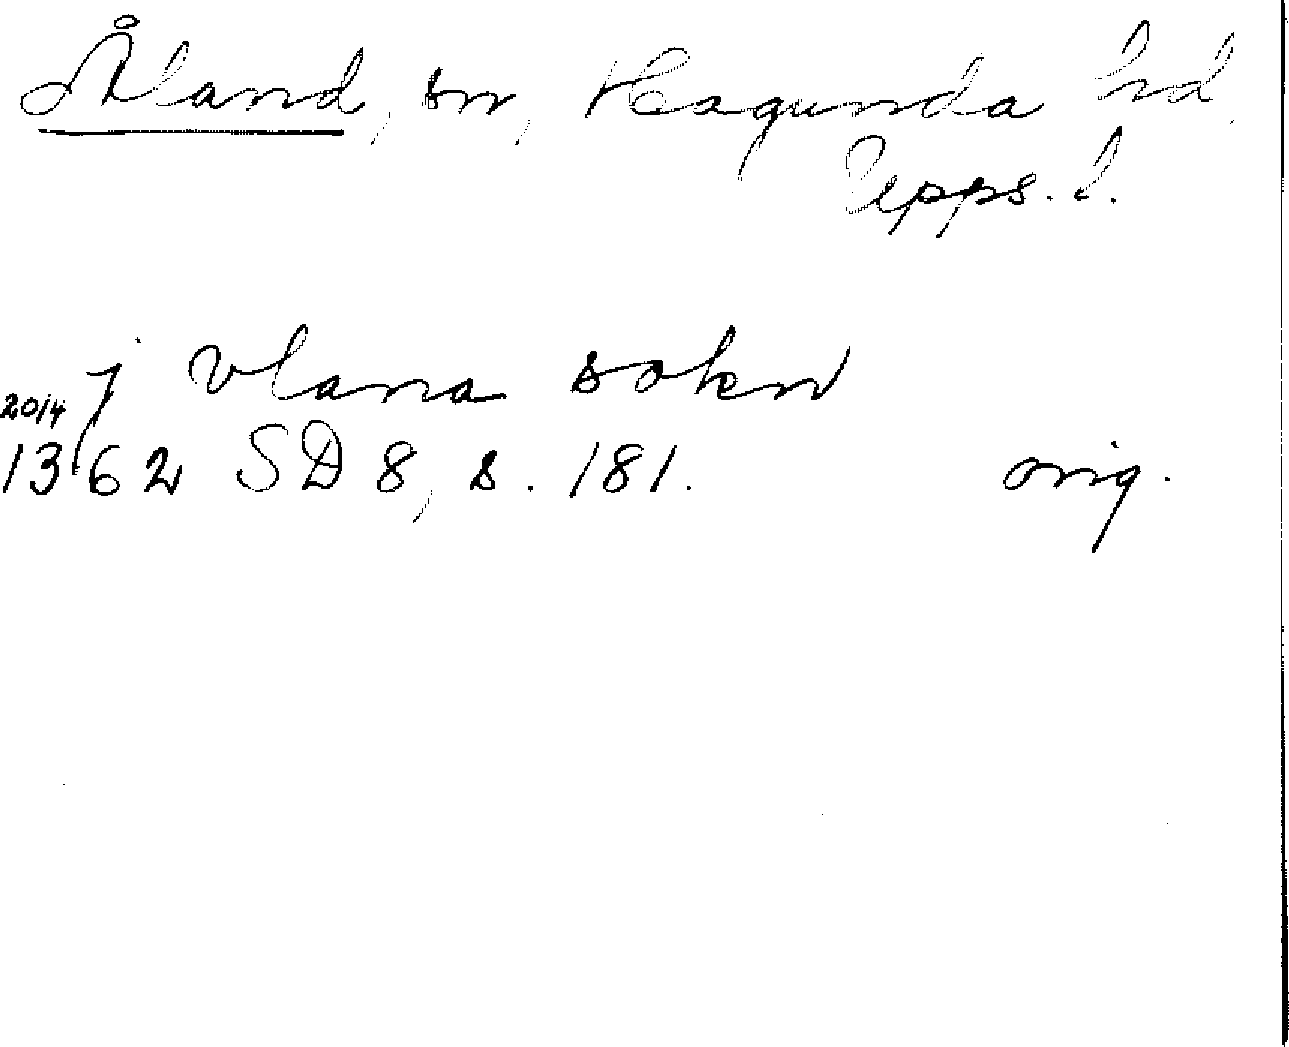 Åland, sn, Hagunda hd,
Upps. l.
j Vlana sokn
20/4
1362 SD 8, s. 181. orig.